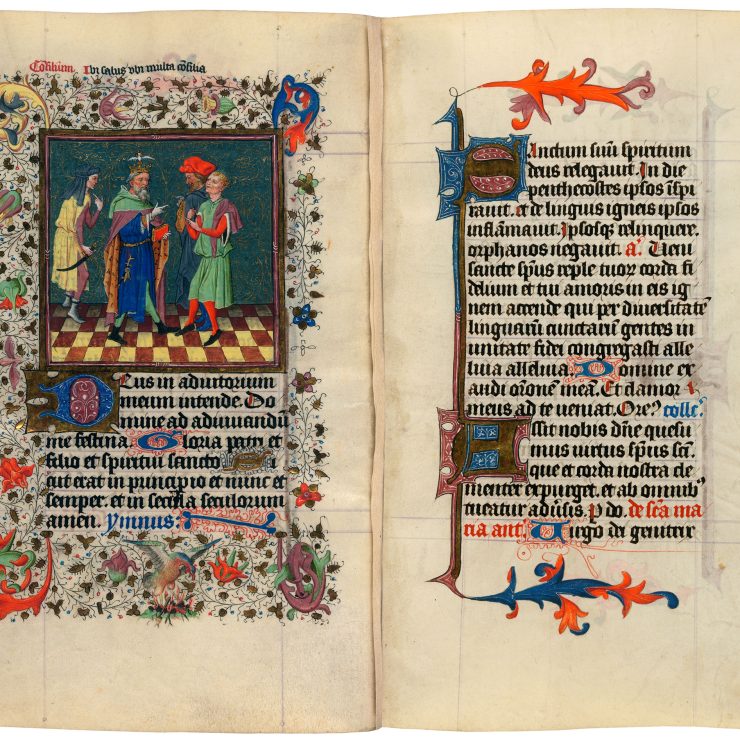 Cōsilium. Ibi salus vbi multa cōsilia
Deus in adiutorium
meum intende. Do
mine ad adiuuandū
me festina. Gloria patri et
filio et spiritui sancto Si
cut erat in principio et nunc et
semper. et in secula seculorum
amen. ymnus:
Sanctum suū spiritum
deus relegauit. In die
penthecostes ipsos īspi
rauit. et de linguis igneis ipsos
inflamauit. Ipsosq; relinquere.
orphanos negauit. a. Ueni
sancte spūs reple tuor corda fi
delium et tui amoris in eis ig
nem accende qui per diuersitatē
linguarū cunctarū gentes in
unitate fidei congregasti alle
luia alleluia Domine ex
audi orōnē meā. Et clamor
meus ad te ueniat. Ore. colle.
Assit nobis dñe quesu
mus uirtus spūs
que et corda nostra cle
menter expurget. et ab omnib
tueatur adūsis. p do. de scā ma
ria ant. Uirgo dei genitrix